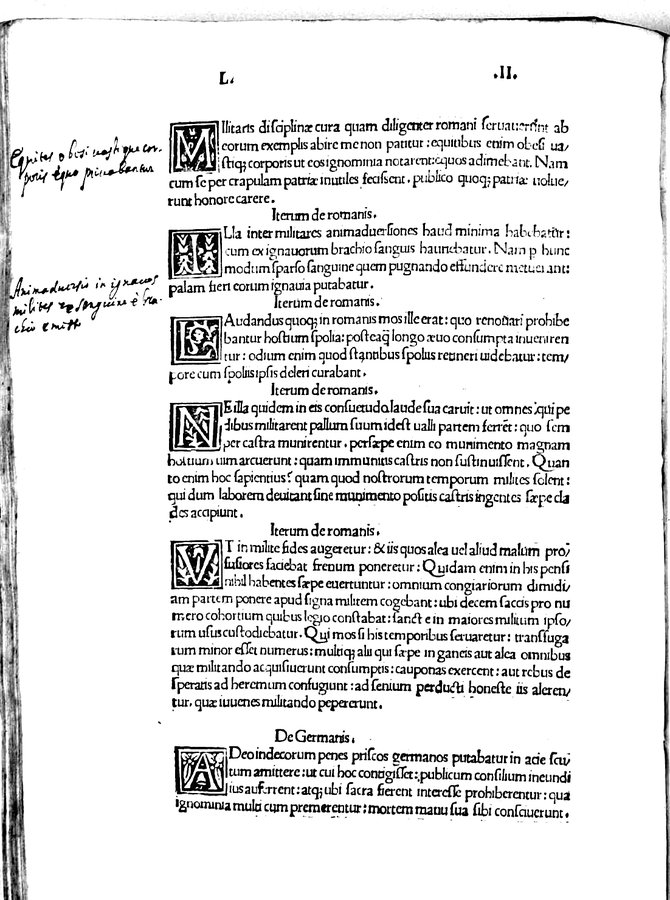 L. .II.
Equites obesi vastique cor-
poris equo privabantur
MIlitaris disciplinæ cura quam diligenter romani seruauerint ab
eorum exemplis abire me non patitur: equitibus enim obesi ua/
stiq; corporis ut eos ignominia notarent: equos adimebant. Nam
cum se per crapulam patriæ inutiles fecissent. publico quoq; patriæ uolue/
runt honore carere.
Iterum de romanis.
ILla inter militares animaduersiones haud minima habebatur:
cum ex ignauorum brachio sanguis hauriebatur. Nam p hunc
modum sparso sanguine quem pugnando effundere metuerant:
palam fieri eorum ignauia putabatur.
Animadversio in ignavos
milites sanguine e bra-
chio
Iterum de romanis.
LAudandus quoq; in romanis mos ille erat: quo renouari prohibe
bantur hostium spolia: posteaq̃ longo æuo consumpta inueniren
tur: odium enim quod stantibus spoliis retineri uidebatur: tem/
pore cum spoliis ipsis deleri curabant.
Iterum de romanis.
NE illa quidem in eis consuetudo laude sua caruit: ut omnes qui pe
dibus militarent pallum suum idest ualli partem ferrẽt: quo sem
per castra munirentur. persæpe enim eo munimento magnam
hostium uim arcuerunt: quam immunitis castris non sustinuissent. Quan
to enim hoc sapientius? quam quod nostrorum temporum milites solent:
qui dum laborem deuitant sine munimento positis castris ingentes sæpe cla
des accipiunt.
Iterum de romanis.
VT in milite fides augeretur: & iis quos alea uel aliud malum pro/
fusiores faciebat frenum poneretur: Quidam enim in his pensi
nihil habentes sæpe euertuntur: omnium congiariorum dimidi/
am partem ponere apud signa militem cogebant: ubi decem saccis pro nu
mero cohortium quibus legio constabat: sancte in maiores militum ipso/
rum usus custodiebatur. Qui mos si his temporibus seruaretur: transfuga
rum minor esset numerus: multiq; alii qui sæpe in ganeis aut alea omnibus
quæ militando acquisiuerunt consumptis: cauponas exercent: aut rebus de
speratis ad heremum confugiunt: ad senium perducti honeste iis aleren/
tur. quæ iuuenes militando pepererunt.
De Germanis.
ADeo indecorum penes priscos germanos putabatur in acie scu/
tum amittere: ut cui hoc contigisset: publicum consilium ineundi
ius auferrent: atq; ubi sacra fierent interesse prohiberentur: qua
ignominia multi cum premerentur: mortem manu sua sibi consciuerunt.